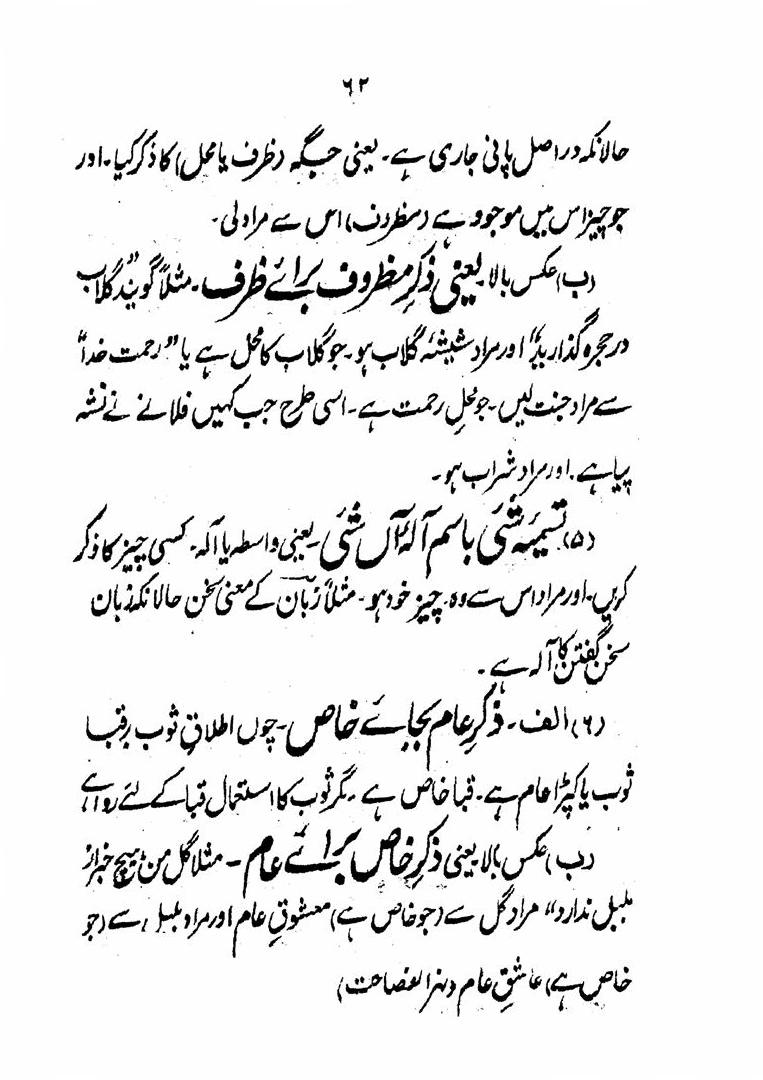 ۶۲
حالانکہ دراصل پانی جاری ہے۔ یعنی جگہ (ظرف یا محل) کا ذکر کیا۔ اور
جو چیز اس میں موجود ہے (مظروف) اس سے مراد لی۔
(ب) عکس بالا یعنی ذکرِ مظروف برائے ظرف۔ مثلاً گویند ”گلاب
در حجرہ گذارید“ اور مراد شیشۂ گلاب ہو۔ جو گلاب کا محل ہے یا ”رحمت خدا“
سے مراد جنت لیں۔ جو محلِ رحمت ہے۔ اسی طرح جب کہیں فلانے نے نشہ
پیا ہے۔ اور مراد شراب ہو۔
(۵) تسمیۂ شئی باسم آلۂ آں شئی۔ یعنی واسطہ یا آلہ۔ کسی چیز کا ذکر
کریں۔ اور مراد اس سے وہ چیز خود ہو۔ مثلاً زبان کے معنی سخن حالانکہ زبان
سخن گفتن کا آلہ ہے۔
(۶) الف۔ ذکرِ عام بجائے خاص۔ چوں اطلاقِ ثوب بر قبا
ثوب یا کپڑا عام ہے۔ قبا خاص ہے۔ مگر ثوب کا استعمال قبا کے لئے روا ہے
(ب) عکس بالا یعنی ذکرِ خاص برائے عام۔ مثلاً گل من ہیچ خبر از
بلبل ندارد“ مراد گل سے (جو خاص ہے) معشوقِ عام اور مراد بلبل سے (جو
خاص ہے) عاشقِ عام (نہر الفصاحت)